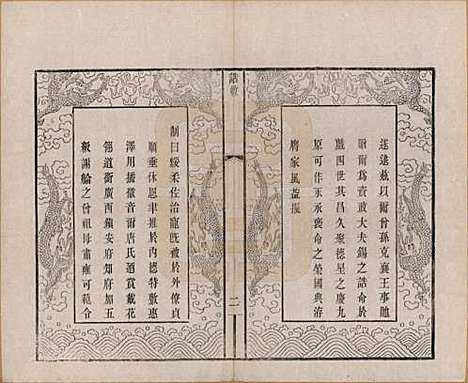 遠逮茲以爾曾孫克襄王事貤
贈爾爲資政大夫錫之誥命於
戲四世其昌久聚德星之慶九
原可作永承褒命之榮國典濟
膺家風益振
誥敕
二
制曰綏柔佐治寵旣被於外僚貞
順垂休恩聿推於內德特敷惠
澤用播徽音爾唐氏迺賞戴花
翎道銜廣西鎮安府知府加五
級謝綸之曾祖母肅雍可範令